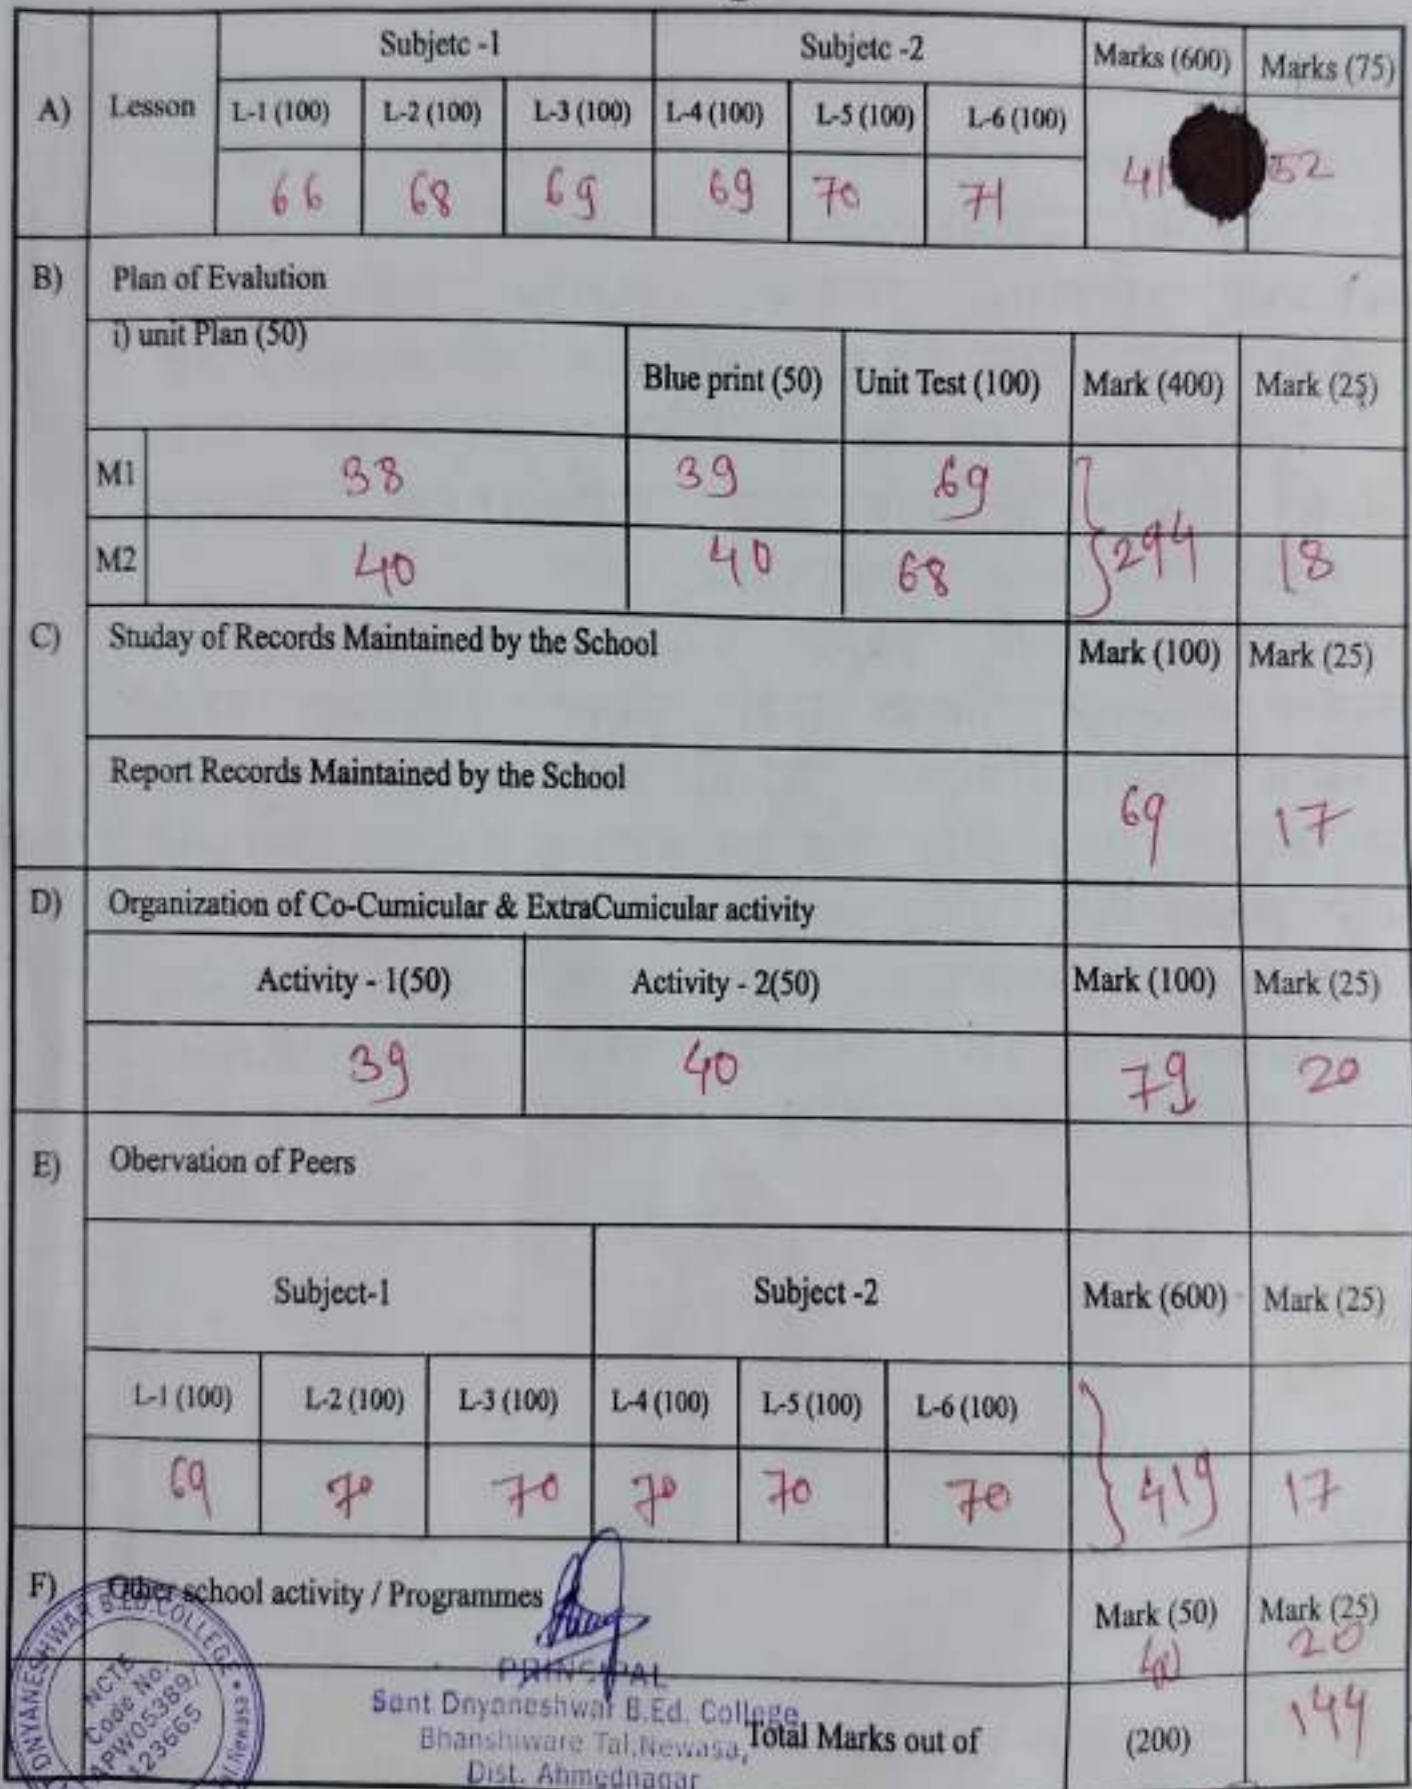 Subjetc -1 Subjetc -2 Marks (600) Marks (75)
A) Lesson L-1 (100) L-2 (100) L-3 (100) L-4 (100) L-5 (100) L-6 (100)
66 68 69 69 70 71 41 52
B) Plan of Evalution
i) unit Plan (50) Blue print (50) Unit Test (100) Mark (400) Mark (25)
M1 38 39 69
M2 40 40 68 294 18
C) Studay of Records Maintained by the School Mark (100) Mark (25)
Report Records Maintained by the School 69 17
D) Organization of Co-Cumicular & ExtraCumicular activity
Activity - 1(50) Activity - 2(50) Mark (100) Mark (25)
39 40 79 20
E) Obervation of Peers
Subject-1 Subject -2 Mark (600) Mark (25)
L-1 (100) L-2 (100) L-3 (100) L-4 (100) L-5 (100) L-6 (100)
69 70 70 70 70 70 419 17
F) Other school activity / Programmes Mark (50) Mark (25)
40 20
PRINSIPAL
Sant Dnyaneshwar B.Ed. College
Bhanshiware Tal.Newasa,
Dist. Ahmednagar
Total Marks out of (200) 144
DNYANESHWAR B.ED.COLLEGE
NCTE
Code No.
APW05389/
123665